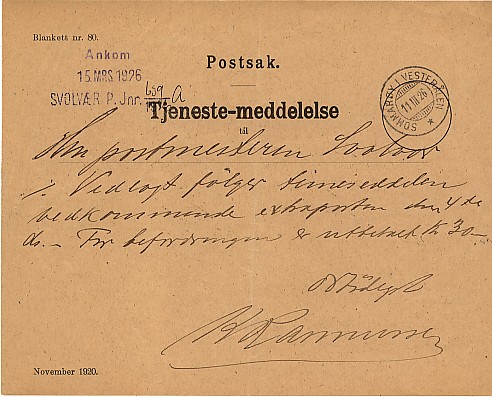 Blankett nr. 80.
Ankom
15 MRS 1926
SVOLVÆR P. Jnr. 659/A
Postsak.
SOMMARØY I VESTERÅLEN
11 III 26
Tjeneste-meddelelse
til
Hrr postmesteren Svolvær
Vedlagt følger timeseddelen
vedkommende extraposten den 4 de
ds. – For befordringen er utbetalt Kr 30–
Ærbødigst
Rasmussen
November 1920.